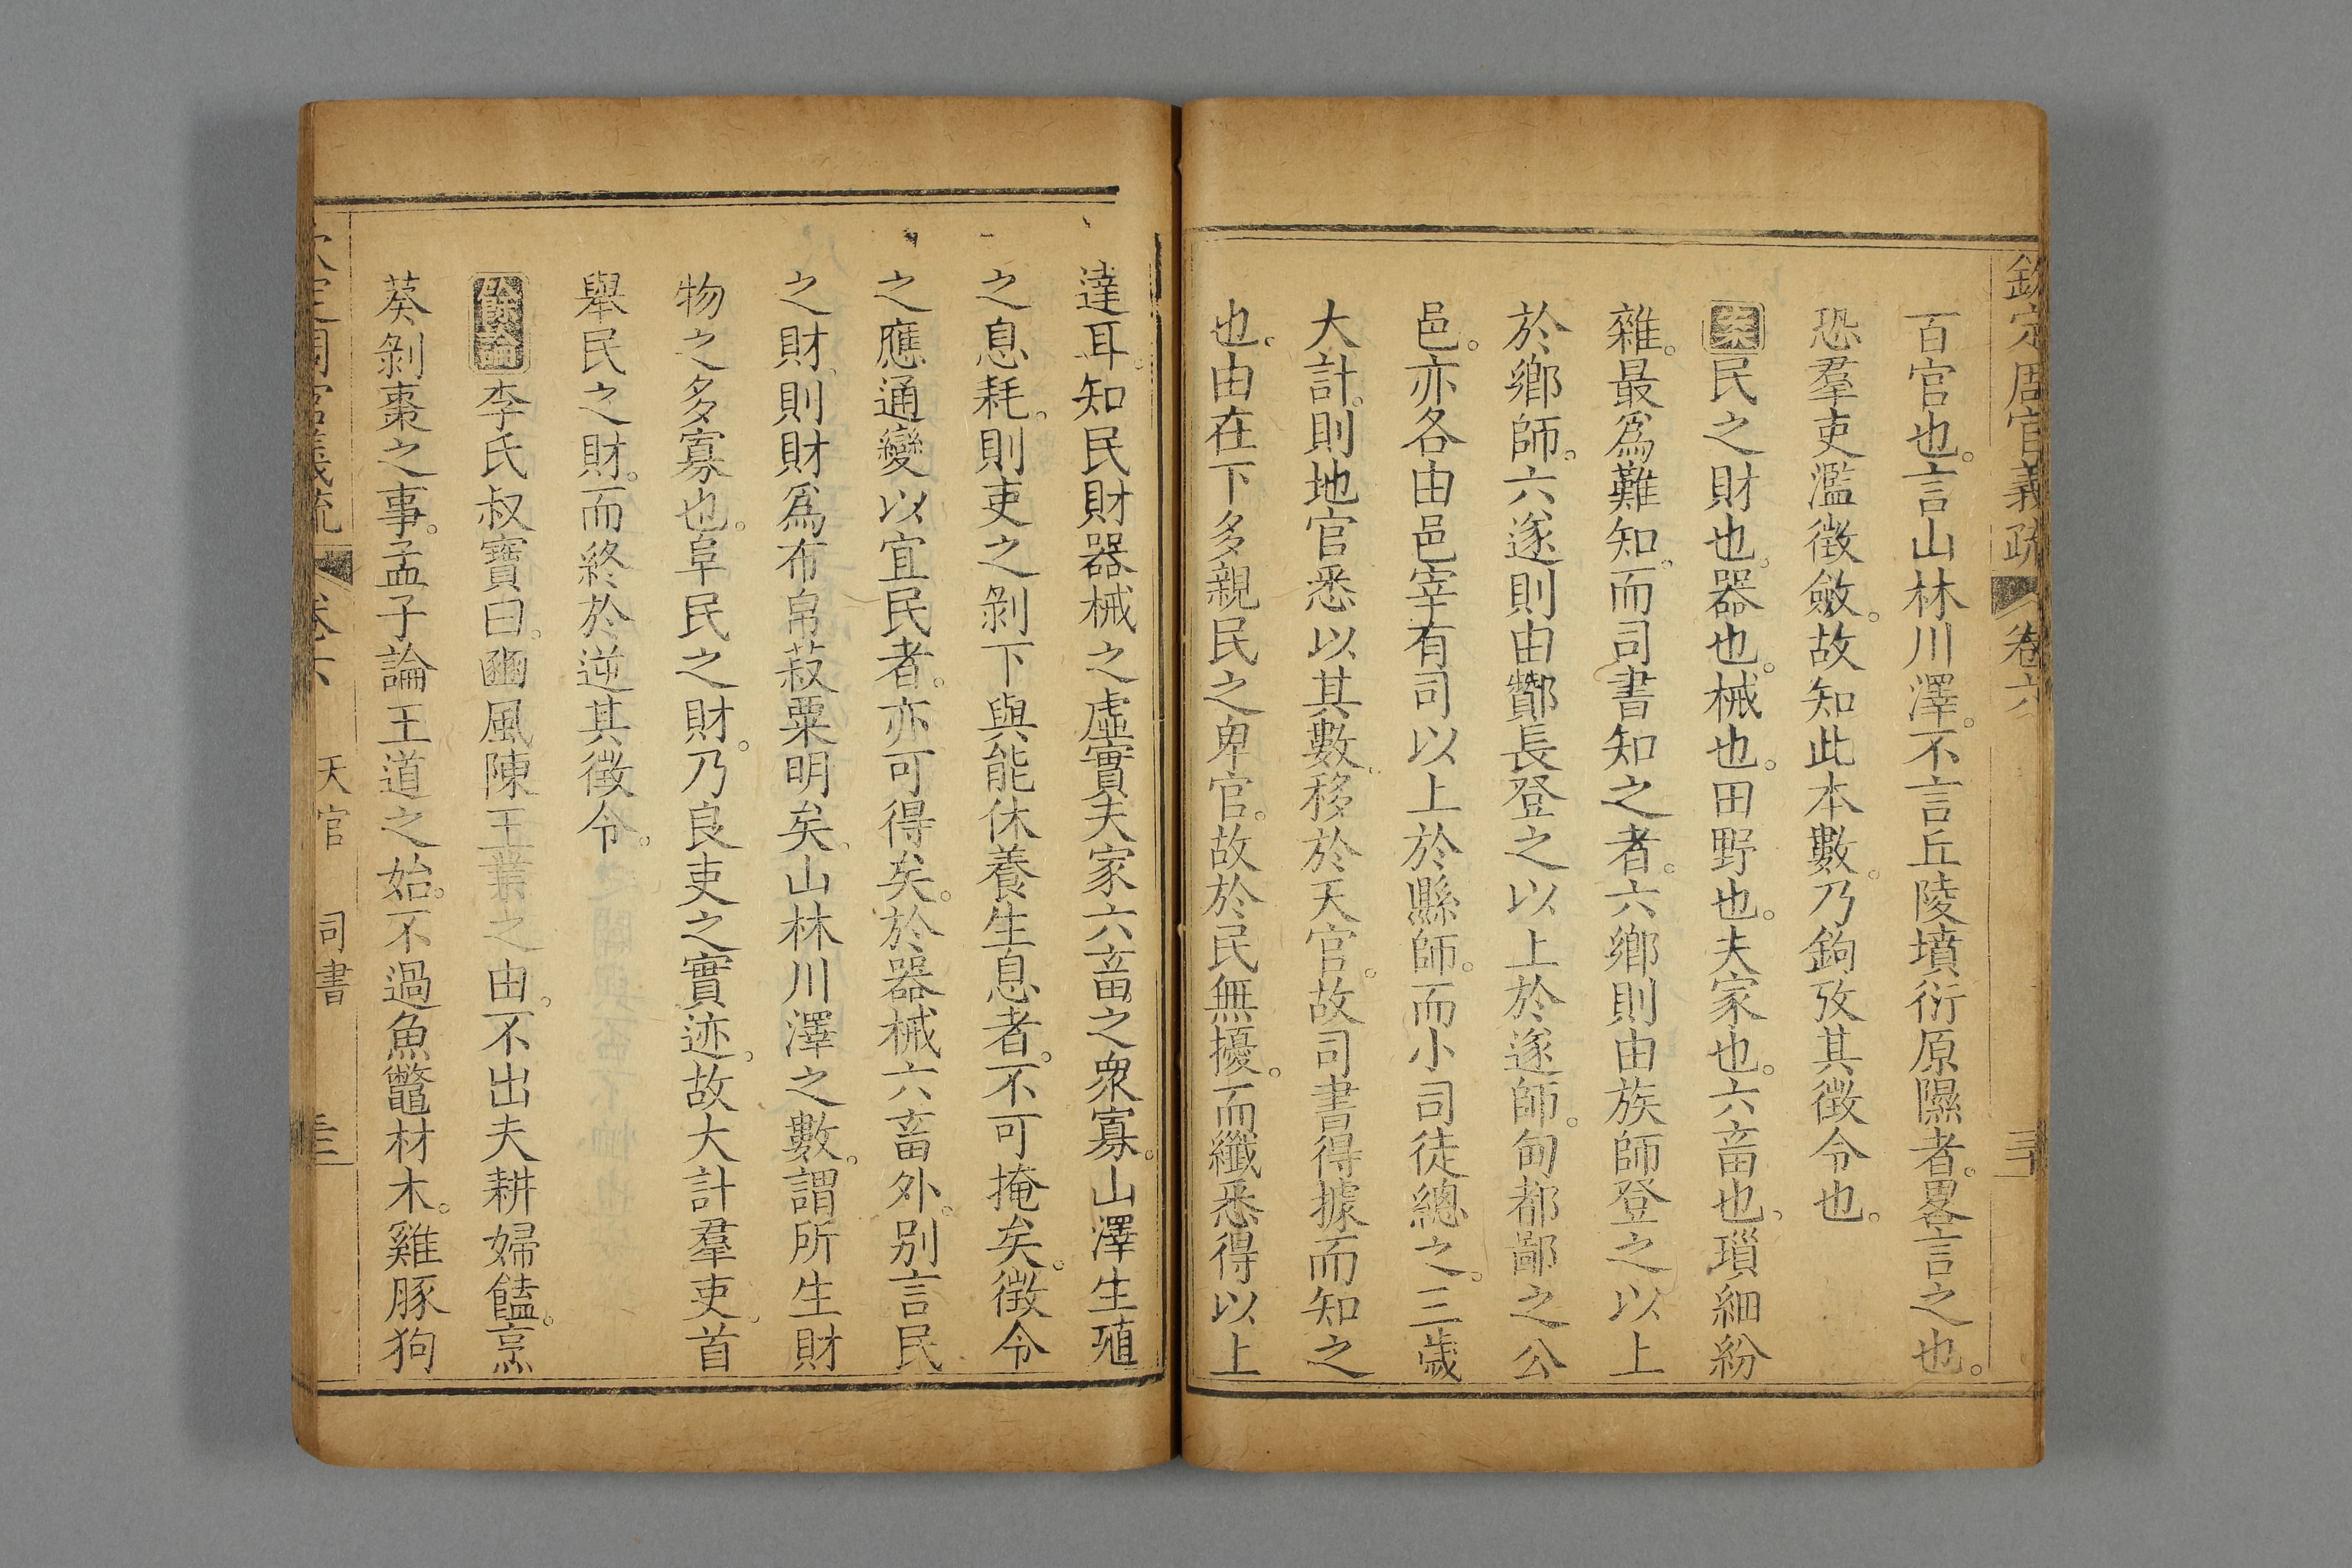 欽定周官義疏 卷六
百官也。言山林川澤。不言丘陵墳衍原隰者。畧言之也。
恐羣吏濫徵斂。故知此本數。乃鉤攷其徵令也。
案民之財也。器也。械也。田野也。夫家也。六畜也、瑣細紛
雜。最爲難知。而司書知之者。六鄉則由族師登之以上
於鄉師。六遂則由酇長登之以上於遂師。甸都鄙之公
邑。亦各由邑宰有司以上於縣師。而小司徒總之。三歲
大計。則地官悉以其數、移於天官。故司書得據而知之
也。由在下多親民之卑官。故於民無擾。而纖悉得以上
達耳。知民財器械之虛實夫家六畜之衆寡。山澤生殖
之息耗。則吏之剝下與能休養生息者。不可掩矣。徵令
之應通變以宜民者。亦可得矣。於器械六畜外。別言民
之財、則財爲布帛菽粟明矣。山林川澤之數。謂所生財
物之多寡也。阜民之財。乃良吏之實迹。故大計羣吏。首
舉民之財。而終於逆其徵令。
餘論李氏叔寶曰。豳風陳王業之由。不出夫耕婦饁。烹
葵剝棗之事。孟子論王道之始。不過魚鼈材木。雞豚狗
定周官義疏 卷六 天官 司書